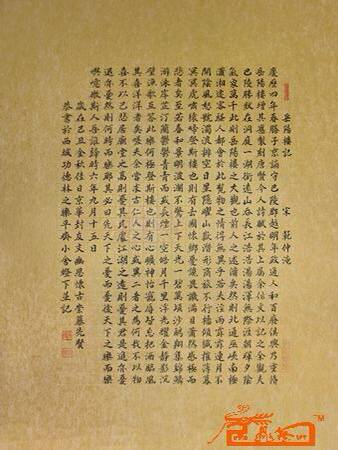 岳陽樓記
宋 范仲淹
慶曆四年春滕子京謫守巴陵郡越明年政通人和百廢俱興乃重修
岳陽樓增其舊制刻唐賢今人詩賦於其上屬余作文以記之余觀夫
巴陵勝狀在洞庭一湖銜遠山吞長江浩浩湯湯橫無際涯朝暉夕陰
氣象萬千此則岳陽樓之大觀也前人之述備矣然則北通巫峽南極
瀟湘遷客騷人多會於此覽物之情得無異乎若夫霪雨霏霏連月不
開陰風怒號濁浪排空日星隱曜山岳潛形商旅不行檣傾楫摧薄暮
冥冥虎嘯猿啼登斯樓也則有去國懷鄉憂讒畏譏滿目蕭然感極而
悲者矣至若春和景明波瀾不驚上下天光一碧萬頃沙鷗翔集錦鱗
游泳岸芷汀蘭郁郁青青而或長煙一空皓月千里浮光耀金靜影沉
璧漁歌互答此樂何極登斯樓也則有心曠神怡寵辱皆忘把酒臨風
其喜洋洋者矣嗟夫余嘗求古仁人之心或異二者之為何哉不以物
喜不以己悲居廟堂之高則憂其民處江湖之遠則憂其君是進亦憂
退亦憂然則何時而樂耶其必曰先天下之憂而憂後天下之樂而樂
歟噫微斯人吾誰與歸時六年九月十五日
歲在己丑金秋佳日京華封友文幽思懷古堂慕先賢
恭書於西城功德林之樂平齋小金燈下並記